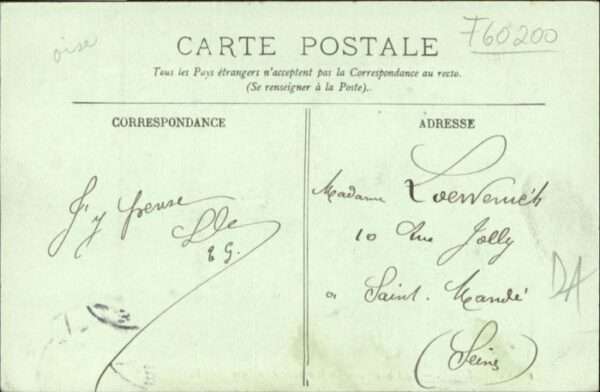 oise
F60200
CARTE POSTALE
Tous les Pays étrangers n'acceptent pas la Correspondance au recto.
(Se renseigner à la Poste)..
CORRESPONDANCE
J'y pense
ADRESSE
Madame Loewenich
10 Rue Jolly
a Saint-Mandé
(Seine)
DA